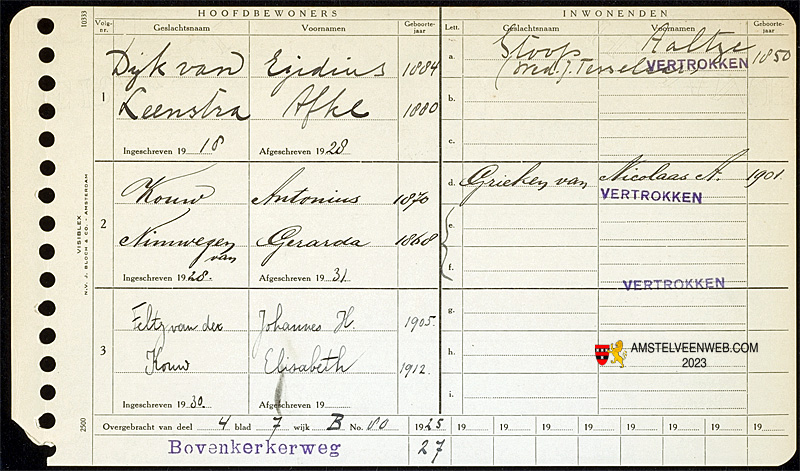 HOOFDBEWONERS INWONENDEN
Volg-nr. Geslachtsnaam Voornamen Geboorte-jaar Lett. Geslachtsnaam Voornamen Geboorte-jaar
1 Dijk van Egidius 1884 a. Stoop Aaltje 1850
(Wed. J. Tesselaar) VERTROKKEN
Leenstra Afke 1880 b.
Ingeschreven 19 18 Afgeschreven 19 28 c.
2 Kouw Antonius 1870 d. Grieken van Nicolaas A. 1901
VERTROKKEN
Nimwegen van Gerarda 1868 e.
Ingeschreven 19 28. Afgeschreven 19 31. f.
VERTROKKEN
3 Feltz van der Johannes H. 1905. g.
Kouw Elisabeth 1912. h.
Ingeschreven 19 30. Afgeschreven 19 i.
Overgebracht van deel 4 blad 7 wijk B No. 80 19 25 19 19 19 19 19 19 19 19
Bovenkerkerweg 27
10333
VISIBLEX
N.V. J. BLOCH & CO. - AMSTERDAM
2500
AMSTELVEENWEB.COM
2023